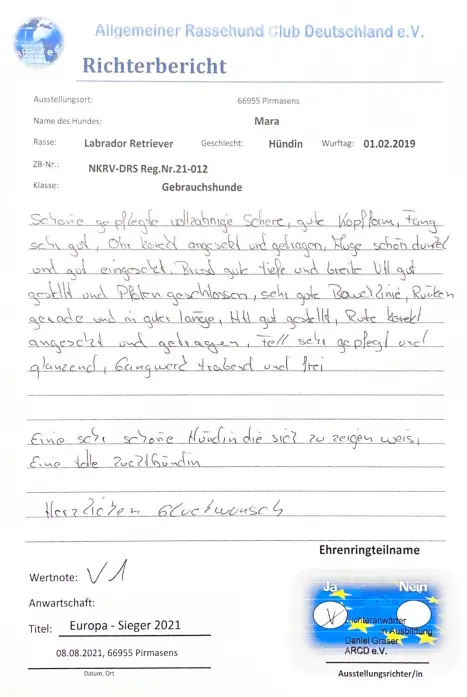 Allgemeiner Rassehund Club Deutschland e.V.
Richterbericht
Ausstellungsort: 66955 Pirmasens
Name des Hundes: Mara
Rasse: Labrador Retriever Geschlecht: Hündin Wurftag: 01.02.2019
ZB-Nr.: NKRV-DRS Reg.Nr.21-012
Klasse: Gebrauchshunde
Schöne gepflegte vollzahnige Schere, gute Kopfform, Fang
sehr gut, Ohr korekt angesetzt und getragen, Auge schön dunkel
und gut eingesetzt. Brust gute tiefe und breite VH gut
gestellt und Pfoten geschlossen, sehr gute Bauchlinie, Rücken
gerade und in guter länge, HH gut gestellt, Rute korekt
angesetzt und getragen, Fell sehr gepflegt und
glänzend, Gangwerk trabend und frei
Eine sehr schöne Hündin die sich zu zeigen weis,
Eine tolle Zuchthündin
Herzlichen Glückwunsch
Ehrenringteilname
Wertnote: V1
Ja Nein
Anwartschaft:
Richteranwärter
in Ausbildung
Titel: Europa - Sieger 2021
Daniel Gräser
ARCD e.V.
08.08.2021, 66955 Pirmasens
Datum, Ort
Ausstellungsrichter/in